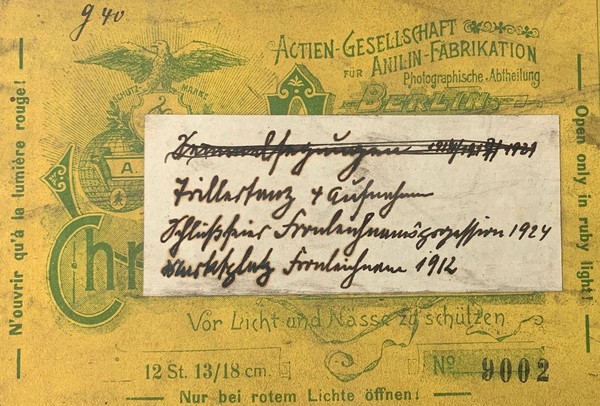 g 40
ACTIEN-GESELLSCHAFT
FÜR ANILIN-FABRIKATION
Photographische Abtheilung
BERLIN
SCHUTZ MARKE
A.
1921
Trillertanz 4 Aufnahmen
Schlußfeier Fronleichnamsprozession 1924
Marktplatz Fronleichnam 1912
Chr
Vor Licht und Nässe zu schützen.
12 St. 13/18 cm.
No 9002
Nur bei rotem Lichte öffnen!
N'ouvrir qu'à la lumière rouge!
Open only in ruby light!